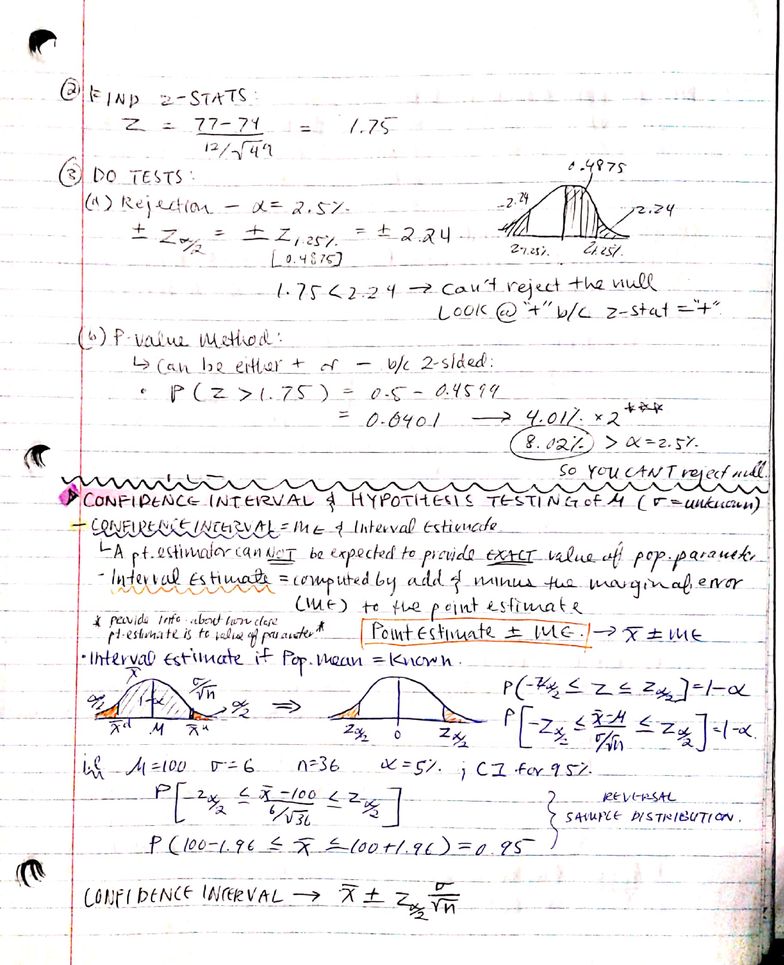 ② FIND Z-STATS:
Z = 77-74 / 12/√49 = 1.75
③ DO TESTS:
(a) Rejection - α = 2.5%.
± Zα/2 = ± Z1.25% = ± 2.24
[0.4875]
0.4875
-2.24
2.24
1.75 < 2.24 → Can't reject the null
LOOK @ "+" b/c z-stat = "+"
(b) P-value Method:
↳ Can be either + or - b/c 2-sided:
• P(Z > 1.75) = 0.5 - 0.4599
= 0.0401 → 4.01% × 2 ***
8.02% > α = 2.5%.
SO YOU CANT reject null.
CONFIDENCE INTERVAL & HYPOTHESIS TESTING of M (σ = unknown)
- CONFIDENCE INTERVAL = ME & Interval Estimate
↳ A pt. estimator can NOT be expected to provide EXACT value of pop. parameter
- Interval Estimate = computed by add & minus the margin of error
(ME) to the point estimate
* provide info about how close
pt-estimate is to value of parameter *
Point Estimate ± ME. → x̄ ± ME
• Interval Estimate if Pop. mean = Known.
x̄ σ/√n
α/2 1-α α/2 ⇒
x̄ᴸ M x̄ᵘ
Zα/2 0 Zα/2
P(-Zα/2 ≤ Z ≤ Zα/2] = 1-α
P[-Zα/2 ≤ x̄-M / σ/√n ≤ Zα/2] = 1-α.
M = 100 σ = 6 n = 36 α = 5% ; CI for 95%.
P[-Zα/2 ≤ x̄-100 / 6/√36 ≤ Zα/2]
REVERSAL
SAMPLE DISTRIBUTION.
P(100-1.96 ≤ x̄ ≤ 100+1.96) = 0.95
CONFIDENCE INTERVAL → x̄ ± Zα/2 σ/√n